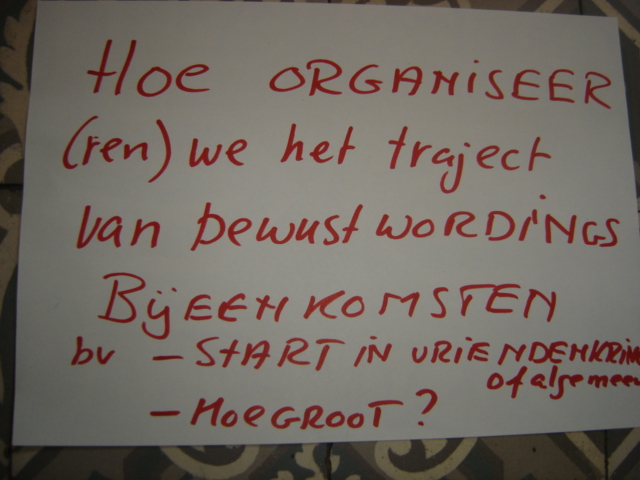 Hoe ORGANISEER
(ren) we het traject
van bewustWORDINGS
BIJEENKOMSTEN
bv - START IN VRIENDENKRIN
of algemeen
- HOE GROOT?